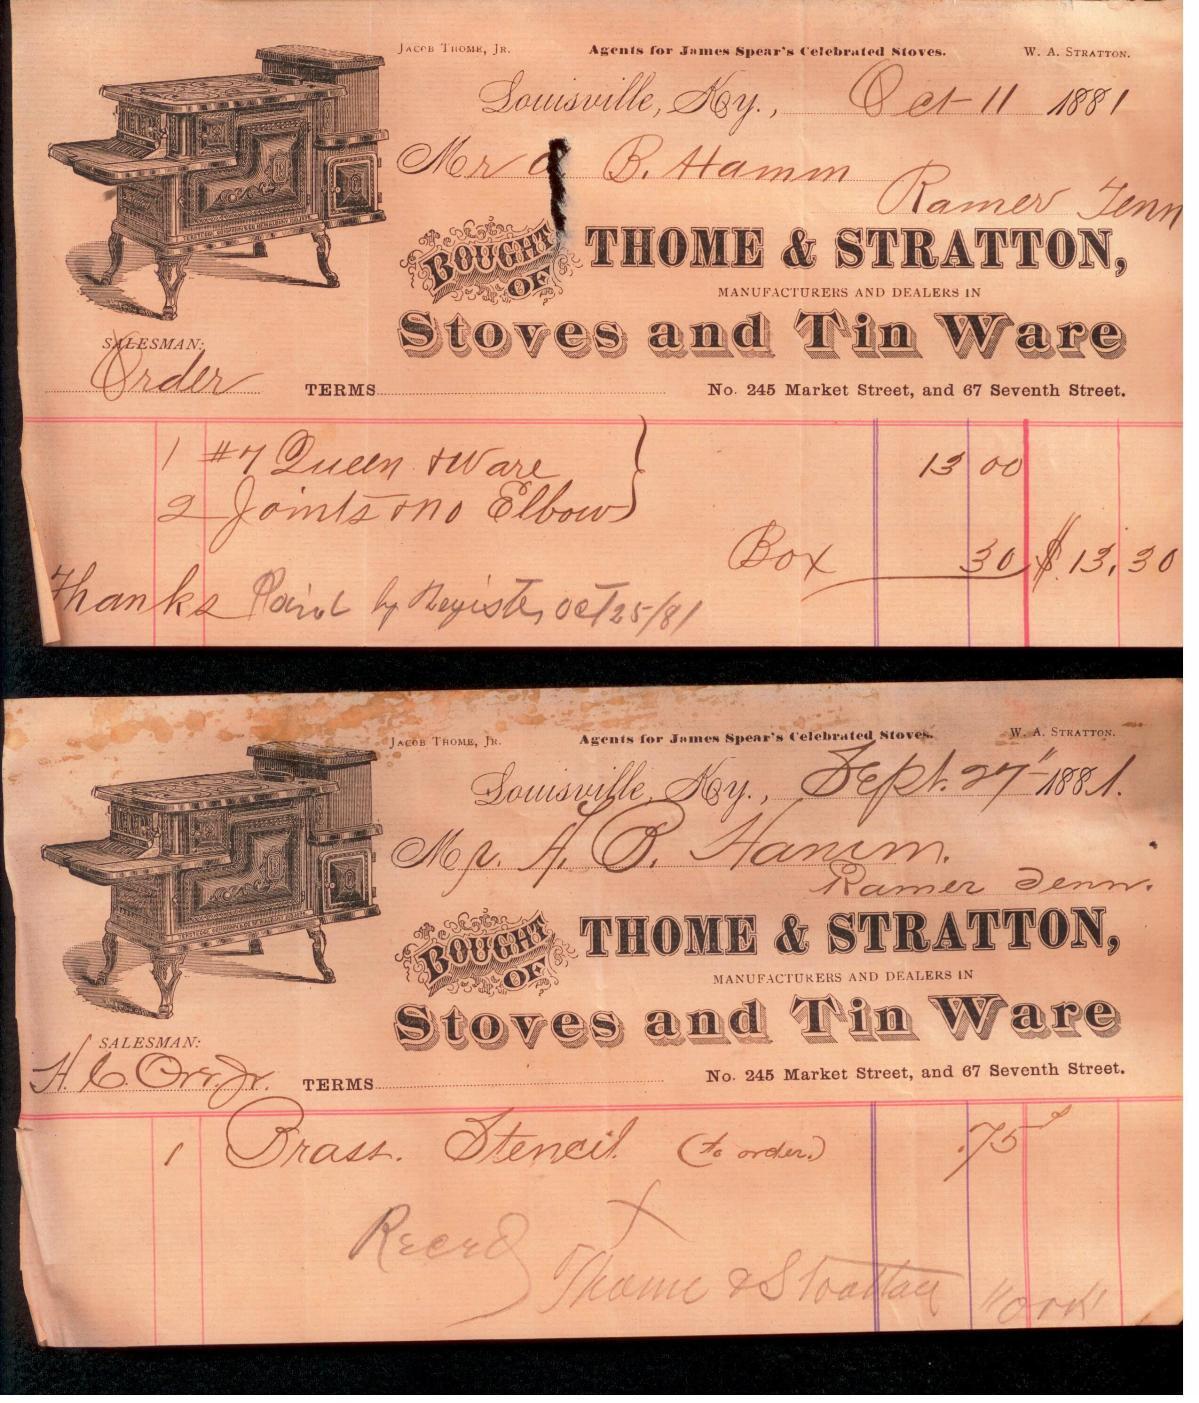 Jacob Thome, Jr. Agents for James Spear's Celebrated Stoves. W. A. Stratton.
Louisville, Ky., Oct 11 1881
Mr B. Hamm
Ramer Tenn
BOUGHT OF THOME & STRATTON,
MANUFACTURERS AND DEALERS IN
Stoves and Tin Ware
SALESMAN:
Order TERMS No. 245 Market Street, and 67 Seventh Street.
1 #7 Queen & Ware 13 00
2 Joints & no Elbow
Box 30 $13.30
Thanks Paid by Register Oct 25/81
Jacob Thome, Jr. Agents for James Spear's Celebrated Stoves. W. A. Stratton.
Louisville, Ky., Sept. 27" 1881.
Mr. A. B. Hamm.
Ramer Tenn.
BOUGHT OF THOME & STRATTON,
MANUFACTURERS AND DEALERS IN
Stoves and Tin Ware
SALESMAN:
H. C. Orr. Jr. TERMS No. 245 Market Street, and 67 Seventh Street.
1 Brass. Stencil. (to order.) .75
X
Recd
Thome & Stratton